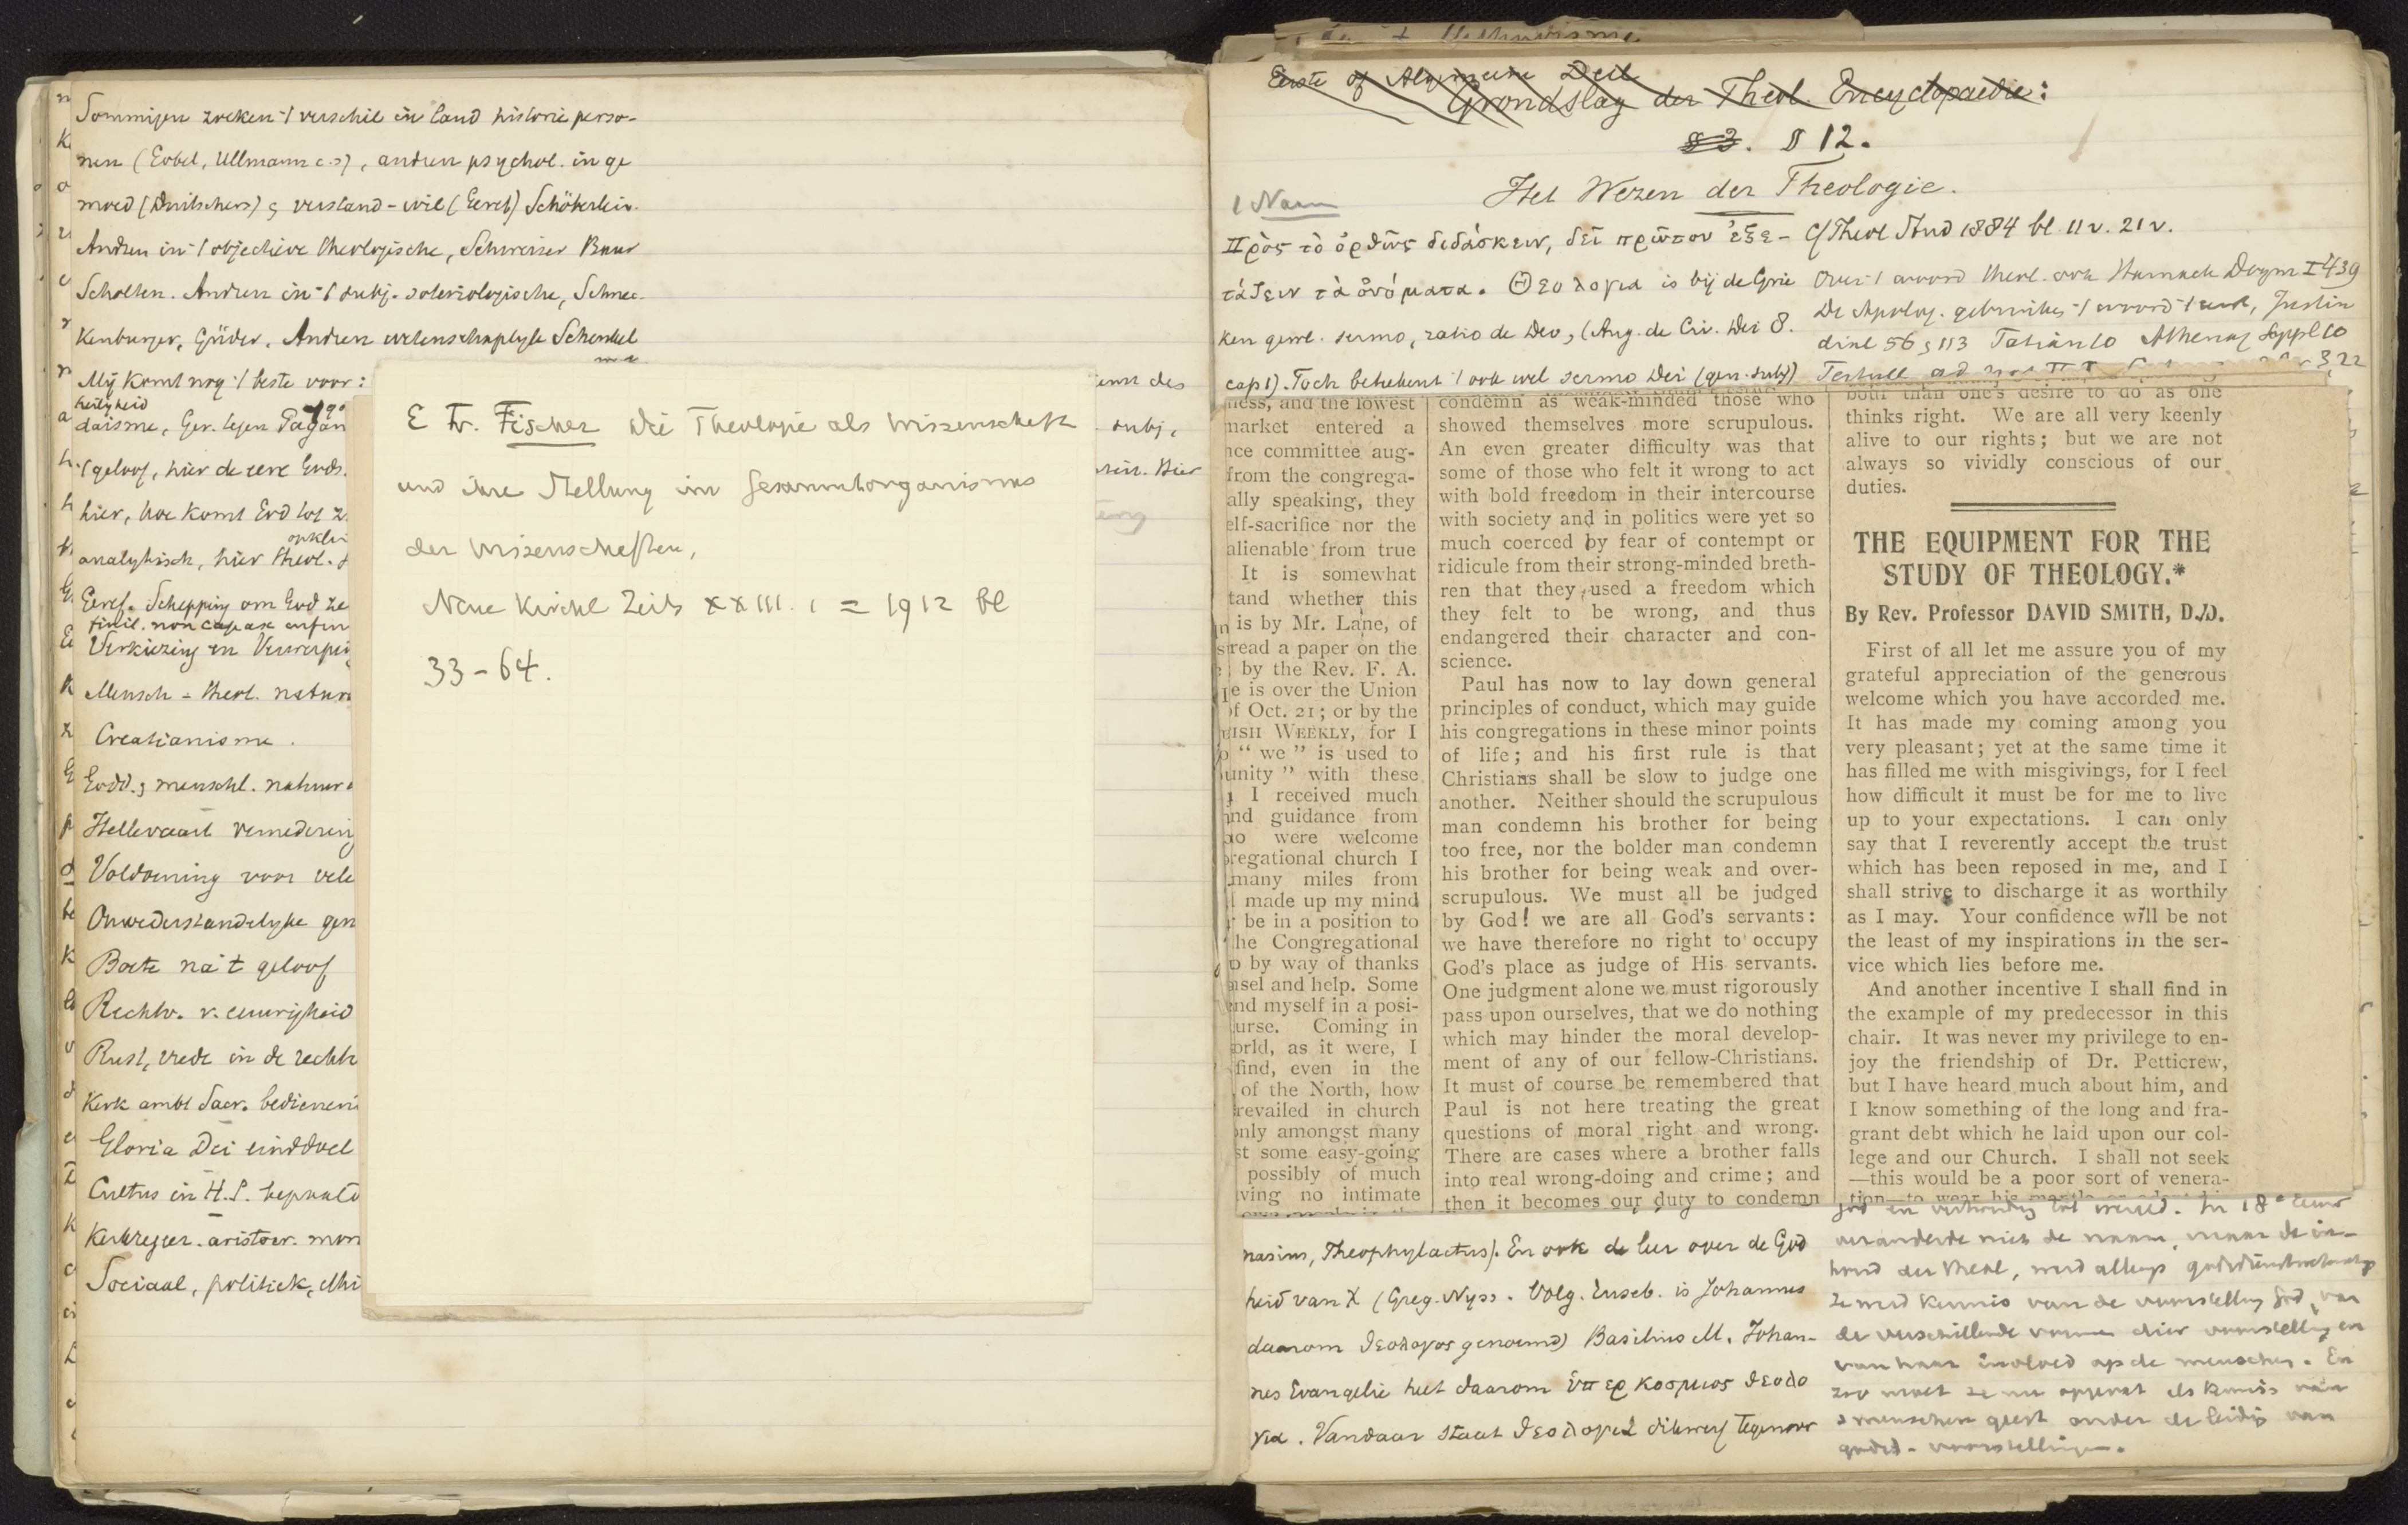 Sommigen zoeken 't verschil in land historie perso-
nen (Göbel, Ullmann c.s), anderen psychol. in ge
moed (Duitschers) & verstand-wil (Geref) Schöberlein.
Anderen in 't objectieve theologische, Schweizer Baur
Scholten. Anderen in 't subj. soteriologische, Schnec-
kenburger, Güder. Anderen wetenschaplyk Schenkel
Mij komt nog 't beste voor:
heiligheid
daisme, Ger. tegen Pagan
't geloof, hier de eere Gods.
hier, hoe komt God tot z
analytisch, hier theol.
Geref. Schepping om God ze
finit. non capax infin
Verkiezing en Verwerping
Mensch - theol. natura
Creatianisme.
Godd. & menschl. natuur
Hellevaart vernedering
Voldoening voor vele
Onwederstandelyke gen
Boete na 't geloof
Rechtv. v. eeuwigheid
Rust, vrede in de rechtv
Kerk ambt Sacr. bedienen
Gloria Dei einddoel
Cultus in H.S. bepaald
Kerkregeer. aristocr. mon
Sociaal, politiek, ethi
enn des
subj.
Hier
E Fr. Fischer Die Theologie als Wissenschaft
und ihre Stellung im Gesammtorganismus
der Wissenschaften,
Neue Kirchl Zeits XXIII. 1 = 1912 bl
33-64.
Eerste of Algemeene Deel
Grondslag der Theol. Encyclopaedie:
§ 3. § 12.
Het Wezen der Theologie.
1 Naam
Πρὸς τὸ ὀρθῶς διδάσκειν, δεῖ πρῶτον ἐξε-
τάζειν τὰ ὀνόματα. Θεολογια is bij de Grie
ken gewl. sermo, ratio de Deo, (Aug. de Civ. Dei 8.
cap 1). Toch beteekent 't ook wel sermo Dei (gen. subj)
Cf Theol Stud 1884 bl. 11 v. 21 v.
Over 't woord theol. ook Harnack Dogm I 439
De Apolog. gebruiken 't woord 't eerst, Justin
dial 56 & 113 Tatian 10 Athenag Suppl 10
Tertull ad nat II
ness, and the lowest
market entered a
nce committee aug-
from the congrega-
ally speaking, they
elf-sacrifice nor the
alienable from true
It is somewhat
tand whether this
n is by Mr. Lane, of
read a paper on the
by the Rev. F. A.
e is over the Union
of Oct. 21; or by the
ISH WEEKLY, for I
"we" is used to
unity" with these
I received much
nd guidance from
o were welcome
regational church I
many miles from
I made up my mind
be in a position to
he Congregational
by way of thanks
nsel and help. Some
nd myself in a posi-
urse. Coming in
orld, as it were, I
find, even in the
of the North, how
revailed in church
nly amongst many
st some easy-going
possibly of much
ving no intimate
condemn as weak-minded those who
showed themselves more scrupulous.
An even greater difficulty was that
some of those who felt it wrong to act
with bold freedom in their intercourse
with society and in politics were yet so
much coerced by fear of contempt or
ridicule from their strong-minded breth-
ren that they used a freedom which
they felt to be wrong, and thus
endangered their character and con-
science.
Paul has now to lay down general
principles of conduct, which may guide
his congregations in these minor points
of life; and his first rule is that
Christians shall be slow to judge one
another. Neither should the scrupulous
man condemn his brother for being
too free, nor the bolder man condemn
his brother for being weak and over-
scrupulous. We must all be judged
by God! we are all God's servants:
we have therefore no right to occupy
God's place as judge of His servants.
One judgment alone we must rigorously
pass upon ourselves, that we do nothing
which may hinder the moral develop-
ment of any of our fellow-Christians.
It must of course be remembered that
Paul is not here treating the great
questions of moral right and wrong.
There are cases where a brother falls
into real wrong-doing and crime; and
then it becomes our duty to condemn
both than one's desire to do as one
thinks right. We are all very keenly
alive to our rights; but we are not
always so vividly conscious of our
duties.
THE EQUIPMENT FOR THE
STUDY OF THEOLOGY.*
By Rev. Professor DAVID SMITH, D.D.
First of all let me assure you of my
grateful appreciation of the generous
welcome which you have accorded me.
It has made my coming among you
very pleasant; yet at the same time it
has filled me with misgivings, for I feel
how difficult it must be for me to live
up to your expectations. I can only
say that I reverently accept the trust
which has been reposed in me, and I
shall strive to discharge it as worthily
as I may. Your confidence will be not
the least of my inspirations in the ser-
vice which lies before me.
And another incentive I shall find in
the example of my predecessor in this
chair. It was never my privilege to en-
joy the friendship of Dr. Petticrew,
but I have heard much about him, and
I know something of the long and fra-
grant debt which he laid upon our col-
lege and our Church. I shall not seek
—this would be a poor sort of venera-
nasius, Theophylactus). En ook de leer over de God
heid van X (Greg. Nyss. Volg. Euseb. is Johannes
daarom θεολογος genoemd) Basilius M. Johan-
nes Evangelie heet daarom ὑπερκοσμιος θεολο
για. Vandaar staat θεολογια dikwerf tegenover
God in verhouding tot wereld. In 18e eeuw
veranderde niet de naam, maar de in-
houd der theol, werd allengs godsdienstwetensch
ze werd kennis van de voorstelling God, van
de verschillende vormen dier voorstelling en
van haar invloed op de menschen. En
zoo moet ze nu opgevat als kennis van
's menschen geest onder de leiding van
godsd- voorstellingen.